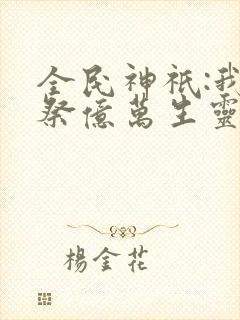 全民神祇:我
祭億萬生靈
楊金花